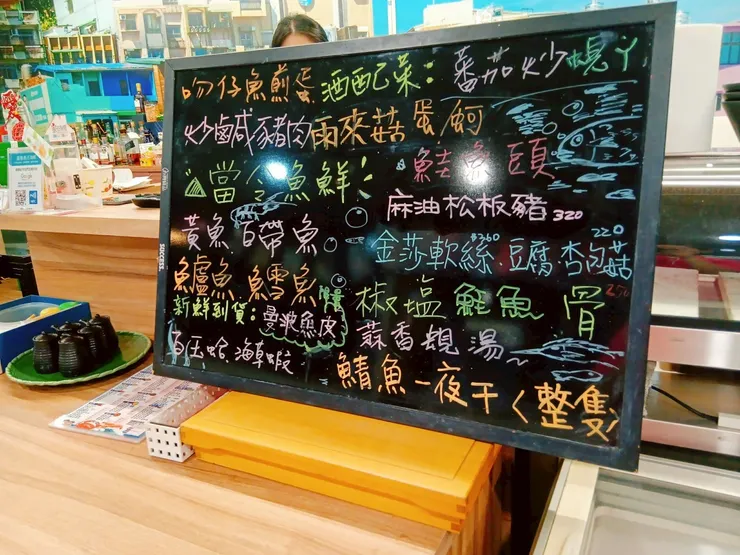 吻仔魚煎蛋 酒配ㄟ菜：蕃茄炒規ㄚ
炒鹹豬肉 雨來菇 蛋 蚵
當令魚鮮：
鮭魚頭
麻油松板豬 320
黃魚 白帶魚
金莎軟絲 $360 豆腐 220 杏包菇 250
鱸魚 鱈魚
椒塩鮭魚骨
新鮮到貨：曼波魚皮
蒜香規湯
海草蝦
鯖魚一夜干（整隻）
SUCCESS